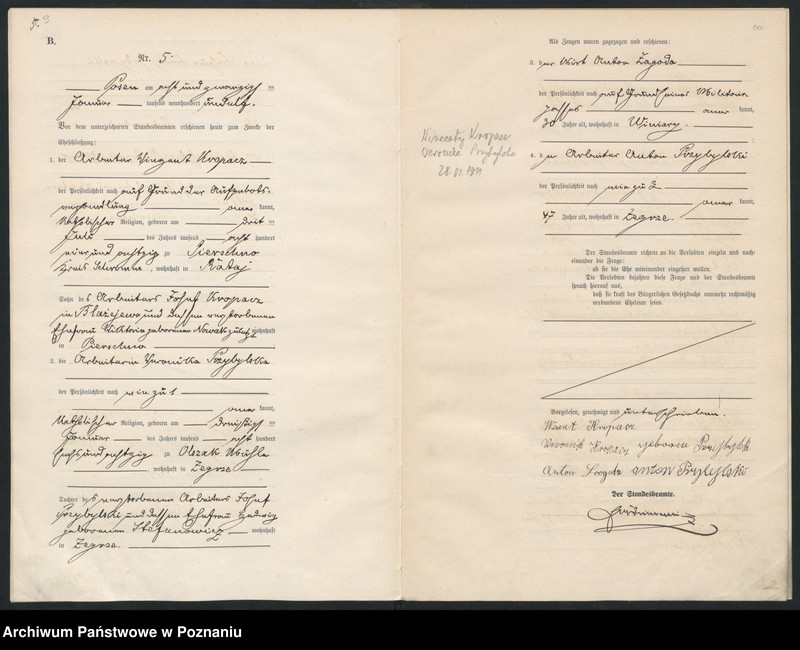 B.
Nr. 5
Posen am acht und zwanzigsten
Januar tausend neunhundert und elf.
Vor dem unterzeichneten Standesbeamten erschienen heute zum Zwecke der
Eheschließung:
1. der Arbeiter Vinzent Kropacz
der Persönlichkeit nach auf Grund der Aufgebots-
verhandlung anerkannt,
katholischer Religion, geboren am
Juli des Jahres tausend acht hundert
vier und achtzig zu Pierschno
Kreis Schrimm, wohnhaft in Rataj
Sohn des Arbeiters Josef Kropacz
in Błażejewo und dessen verstorbenen
Ehefrau Wiktoria geborenen Nowak zuletzt wohnhaft
in Pierschno
2. die Arbeiterin Veronika Przybylska
der Persönlichkeit nach wie zu 1
anerkannt,
katholischer Religion, geboren am dreißigsten
Januar des Jahres tausend acht hundert
sechs und achtzig zu Olszak Mühle
, wohnhaft in Zegrze
Tochter des verstorbenen Arbeiters Josef
Przybylski und dessen Ehefrau Hedwig
geborenen Stefanowicz wohnhaft
in Zegrze.
Als Zeugen waren zugezogen und erschienen:
3. der Wirt Anton Zagoda
der Persönlichkeit nach auf Grund seines Militär-
passes anerkannt,
30 Jahre alt, wohnhaft in Winiary.
4. der Arbeiter Anton Przybylski
der Persönlichkeit nach wie zu 2
anerkannt,
47 Jahre alt, wohnhaft in Zegrze.
Der Standesbeamte richtete an die Verlobten einzeln und nach-
einander die Frage:
ob sie die Ehe miteinander eingehen wollen.
Die Verlobten bejahten diese Frage und der Standesbeamte
sprach hierauf aus,
daß sie kraft des Bürgerlichen Gesetzbuchs nunmehr rechtmäßig
verbundene Eheleute seien.
Vorgelesen, genehmigt und unterschrieben.
Kropacz
Weronika Kropacz geborene Przybylska
Anton Anton Przybylski
Der Standesbeamte.
Kropacz
Weronika Przybylska
28.01.1911
Archiwum Państwowe w Poznaniu